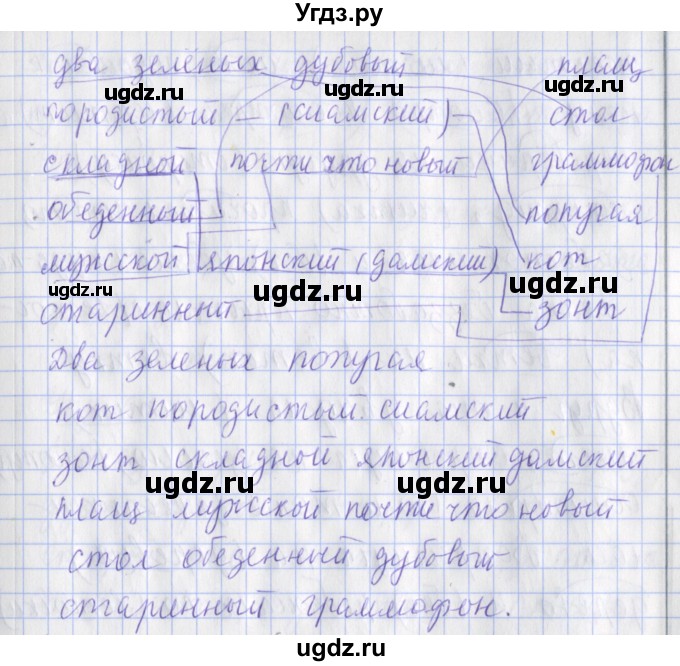 Угдз.ру
два зелёных дубовый плащ
ugdz.ru ugdz.ru ugdz.ru
породистый (сиамский) стол
складной почти что новый граммофон
ugdz.ru ugdz.ru
обеденный попугая
мужской японский (дамский) кот
ugdz.ru ugdz.ru ugdz.ru
старинный зонт
Два зеленых попугая
кот породистый сиамский
зонт складной японский дамский
ugdz.ru ugdz.ru ugdz.ru
плащ мужской почти что новый
стол обеденный дубовый
ugdz.ru ugdz.ru
старинный граммофон.
ugdz.ru ugdz.ru